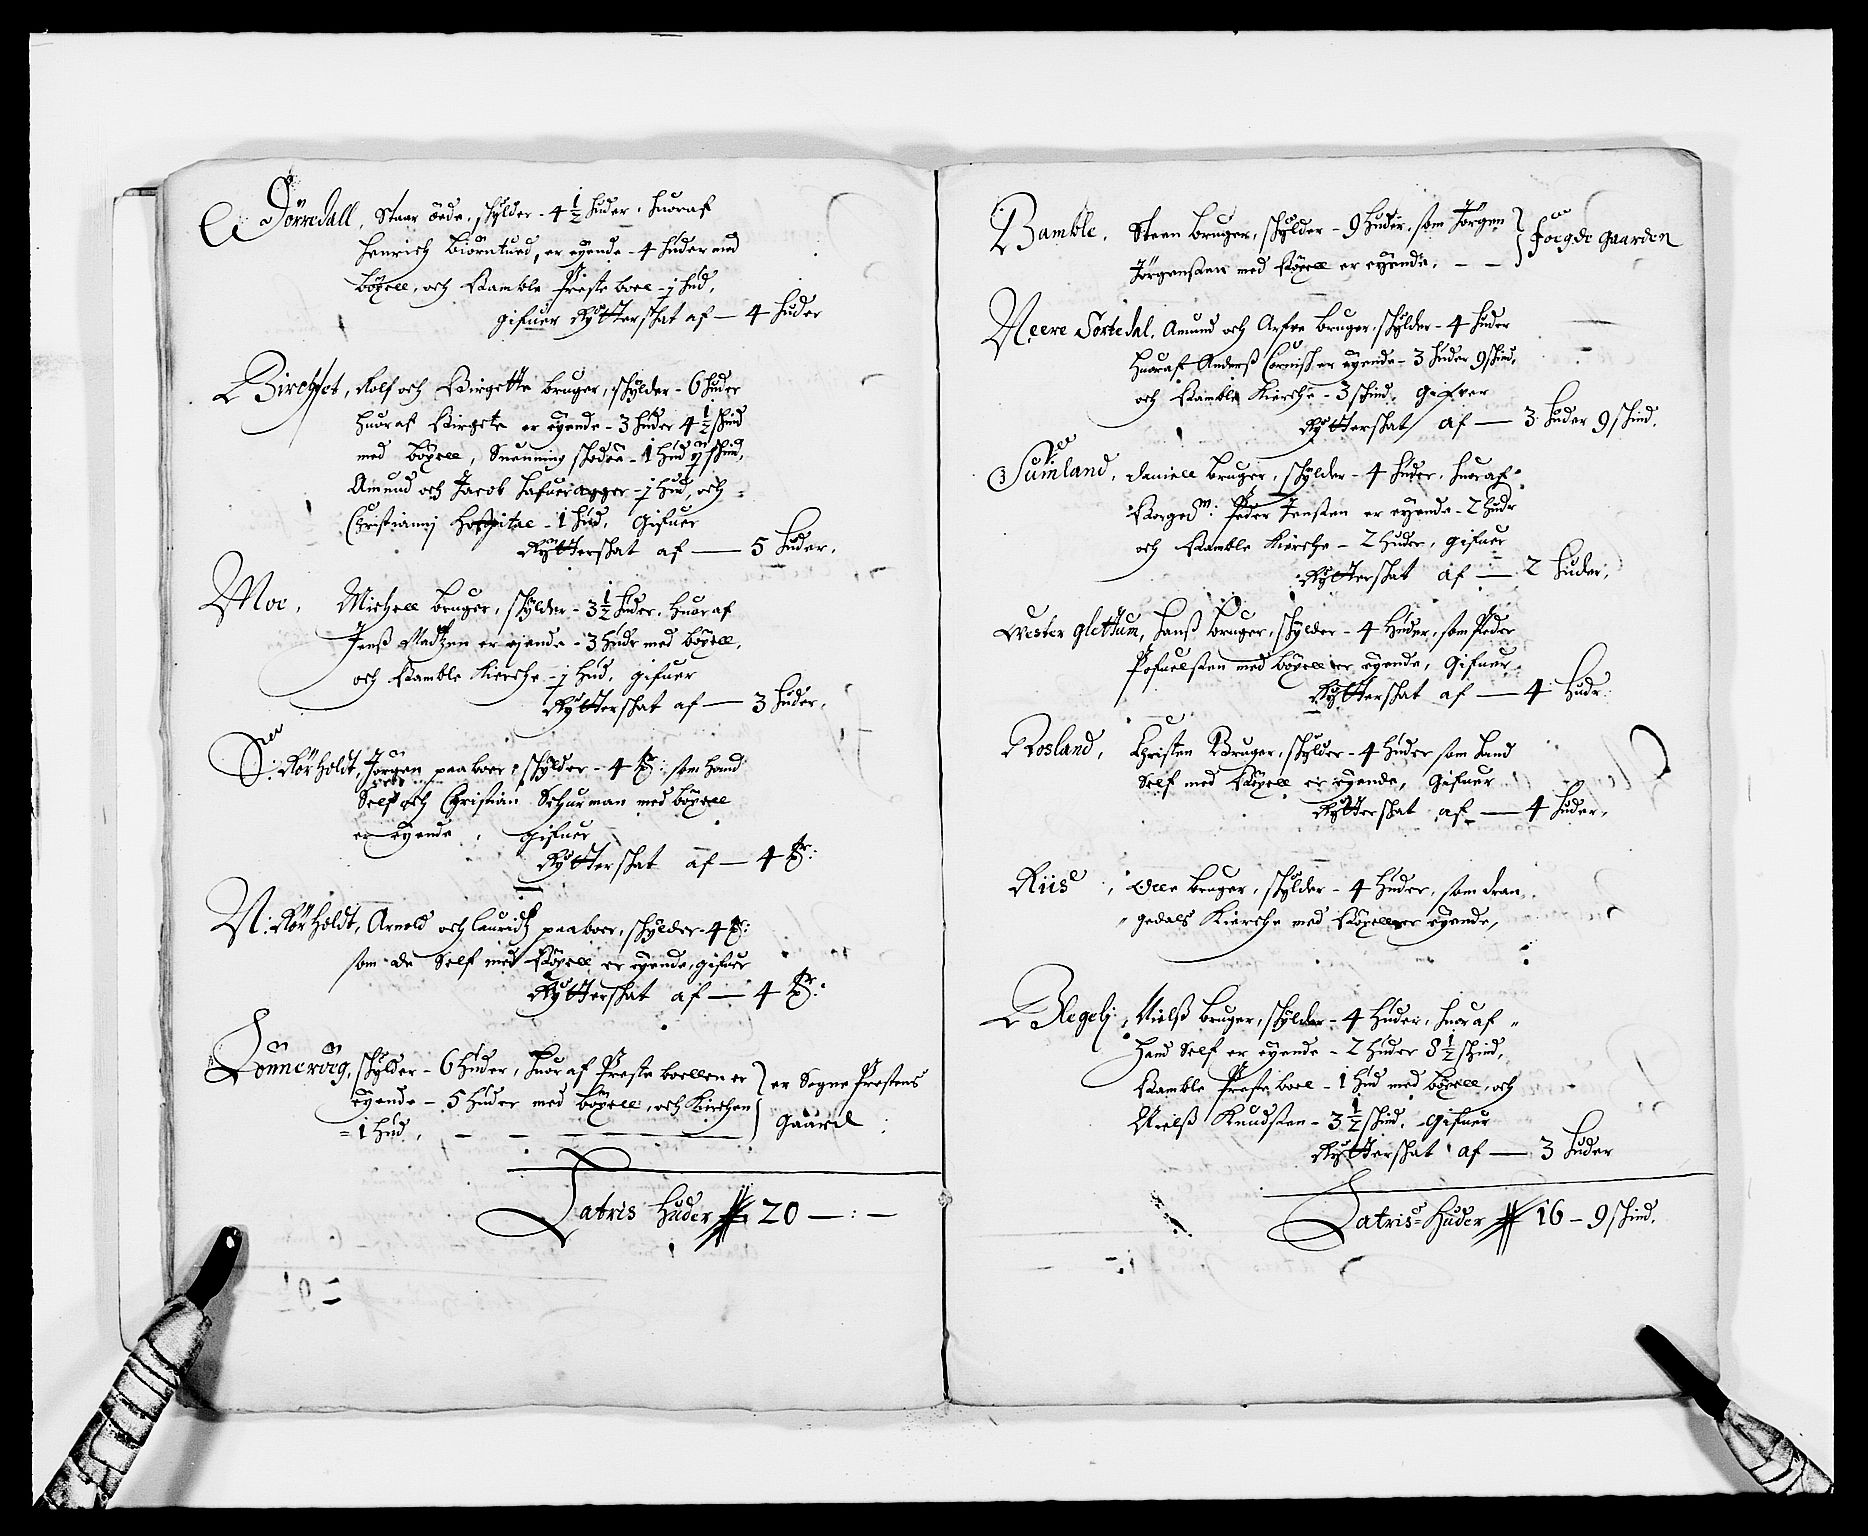 Dörredall, Staar öede, schylder - 4 1/2 huder, huoraf
Henrich Biörntued, er eyende - 4 huder med
böxell, och Bamble Preste boel - j hud,
gifuer Rÿtterschat af — 4 huder
Birchset, Rolf och Birgette bruger, schylder - 6 huder
huoraf Birgete er eyende - 3 huder 4 1/2 schind
med böxell, Suenning - 1 hud schind,
Amund och Jacob - j hud, och
Christianij Hospital - 1 hud, Gifuer
Rÿtterschat af — 5 huder.
Moe, Michell bruger, schylder - 3 1/2 huder, huoraf
Jenß Madtzen er eyende - 3 hudr med böxell,
och Bamble Kierche - j hud, gifuer
Rÿtterschat af — 3 huder,
S: Rörholdt, Jörgen paaboer, schylder - 4 som hand
Self och Christian Schurman med böxell
er eyende, gifuer
Rÿtterschat af — 4
N: Rörholdt, Arnold och Lauridtz paaboer, schylder - 4
som de Self med Böxell er eyende, gifuer
Rÿtterschat af — 4
Lönneroeg, schylder - 6 huder, huoraf Preste boellen er } er Sogne Prestens
eyende - 5 huder med böxell, och Kirchen } Gaard
= 1 hud,
Latris Huder 20 — : —
Bamble, Steen bruger, schylder - 9 huder, som Jörgen } foegde gaarden
Jörgensten med Böxell er eyende,
Neere Sörtedal, Amund och bruger, schylder - 4 huder
huoraf Anderß er eyende - 3 huder 9 schind,
och Bamble Kierche - 3 schind, Gifver
Rÿtterschat af — 3 huder 9 schind.
Sumland, Daniell bruger, schylder - 4 huder, huoraf
Borged M: Peder Jensten er eyende - 2 hudr
och Bamble Kierche - 2 huder, gifuer
Rÿtterschat af — 2 huder,
Wester glettum, Hanß bruger, schylder - 4 Huder, som Peder
Pofuelsten med böxell er eyende, Gifuer
Rÿtterschat af — 4 hudr:
Rosland, Christen Bruger, schylder - 4 huder som hand
Self med Böxell er eyende, Gifuer
Rÿtterschat af — 4 huder,
Riise, Olle bruger, schylder - 4 huder, som dran
gedals Kierche med Böxell er eyende,
Blegelj, Nielß bruger, schylder - 4 huder, huoraf
hand Self er eyende - 2 huder 8 1/2 schind,
Bamble Preste boel - 1 hud med böxell, och
Nielß Knudsten - 3 1/2 schind, Gifuer
Rÿtterschat af — 3 huder
Latris Huder 16 - 9 schind.